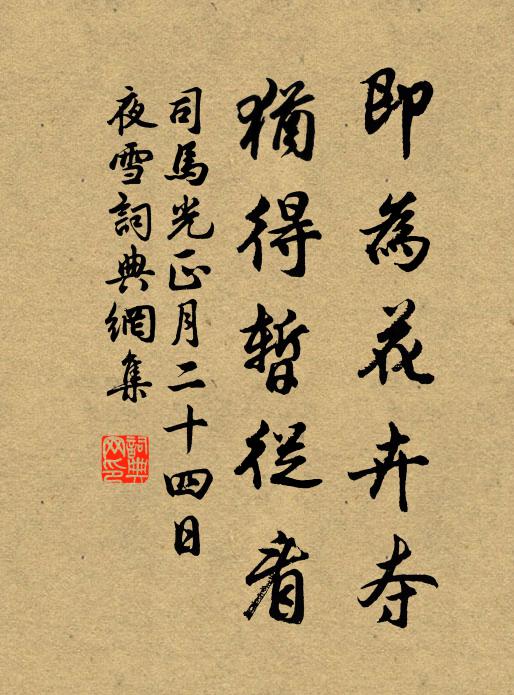 即為花卉夺
猶得暫從看
司馬光正月二十四日
夜雪詞典網集
詞典
网印